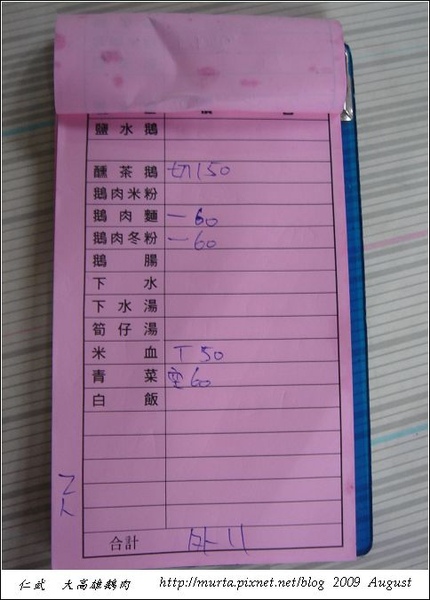 鹽水鵝
醺茶鵝 切150
鵝肉米粉
鵝肉麵 一60
鵝肉冬粉 一60
鵝腸
下水
下水湯
筍仔湯
米血 T 50
青菜 60
白飯
合計
仁武 大高雄鵝肉 http://murta.pixnet.net/blog 2009 August